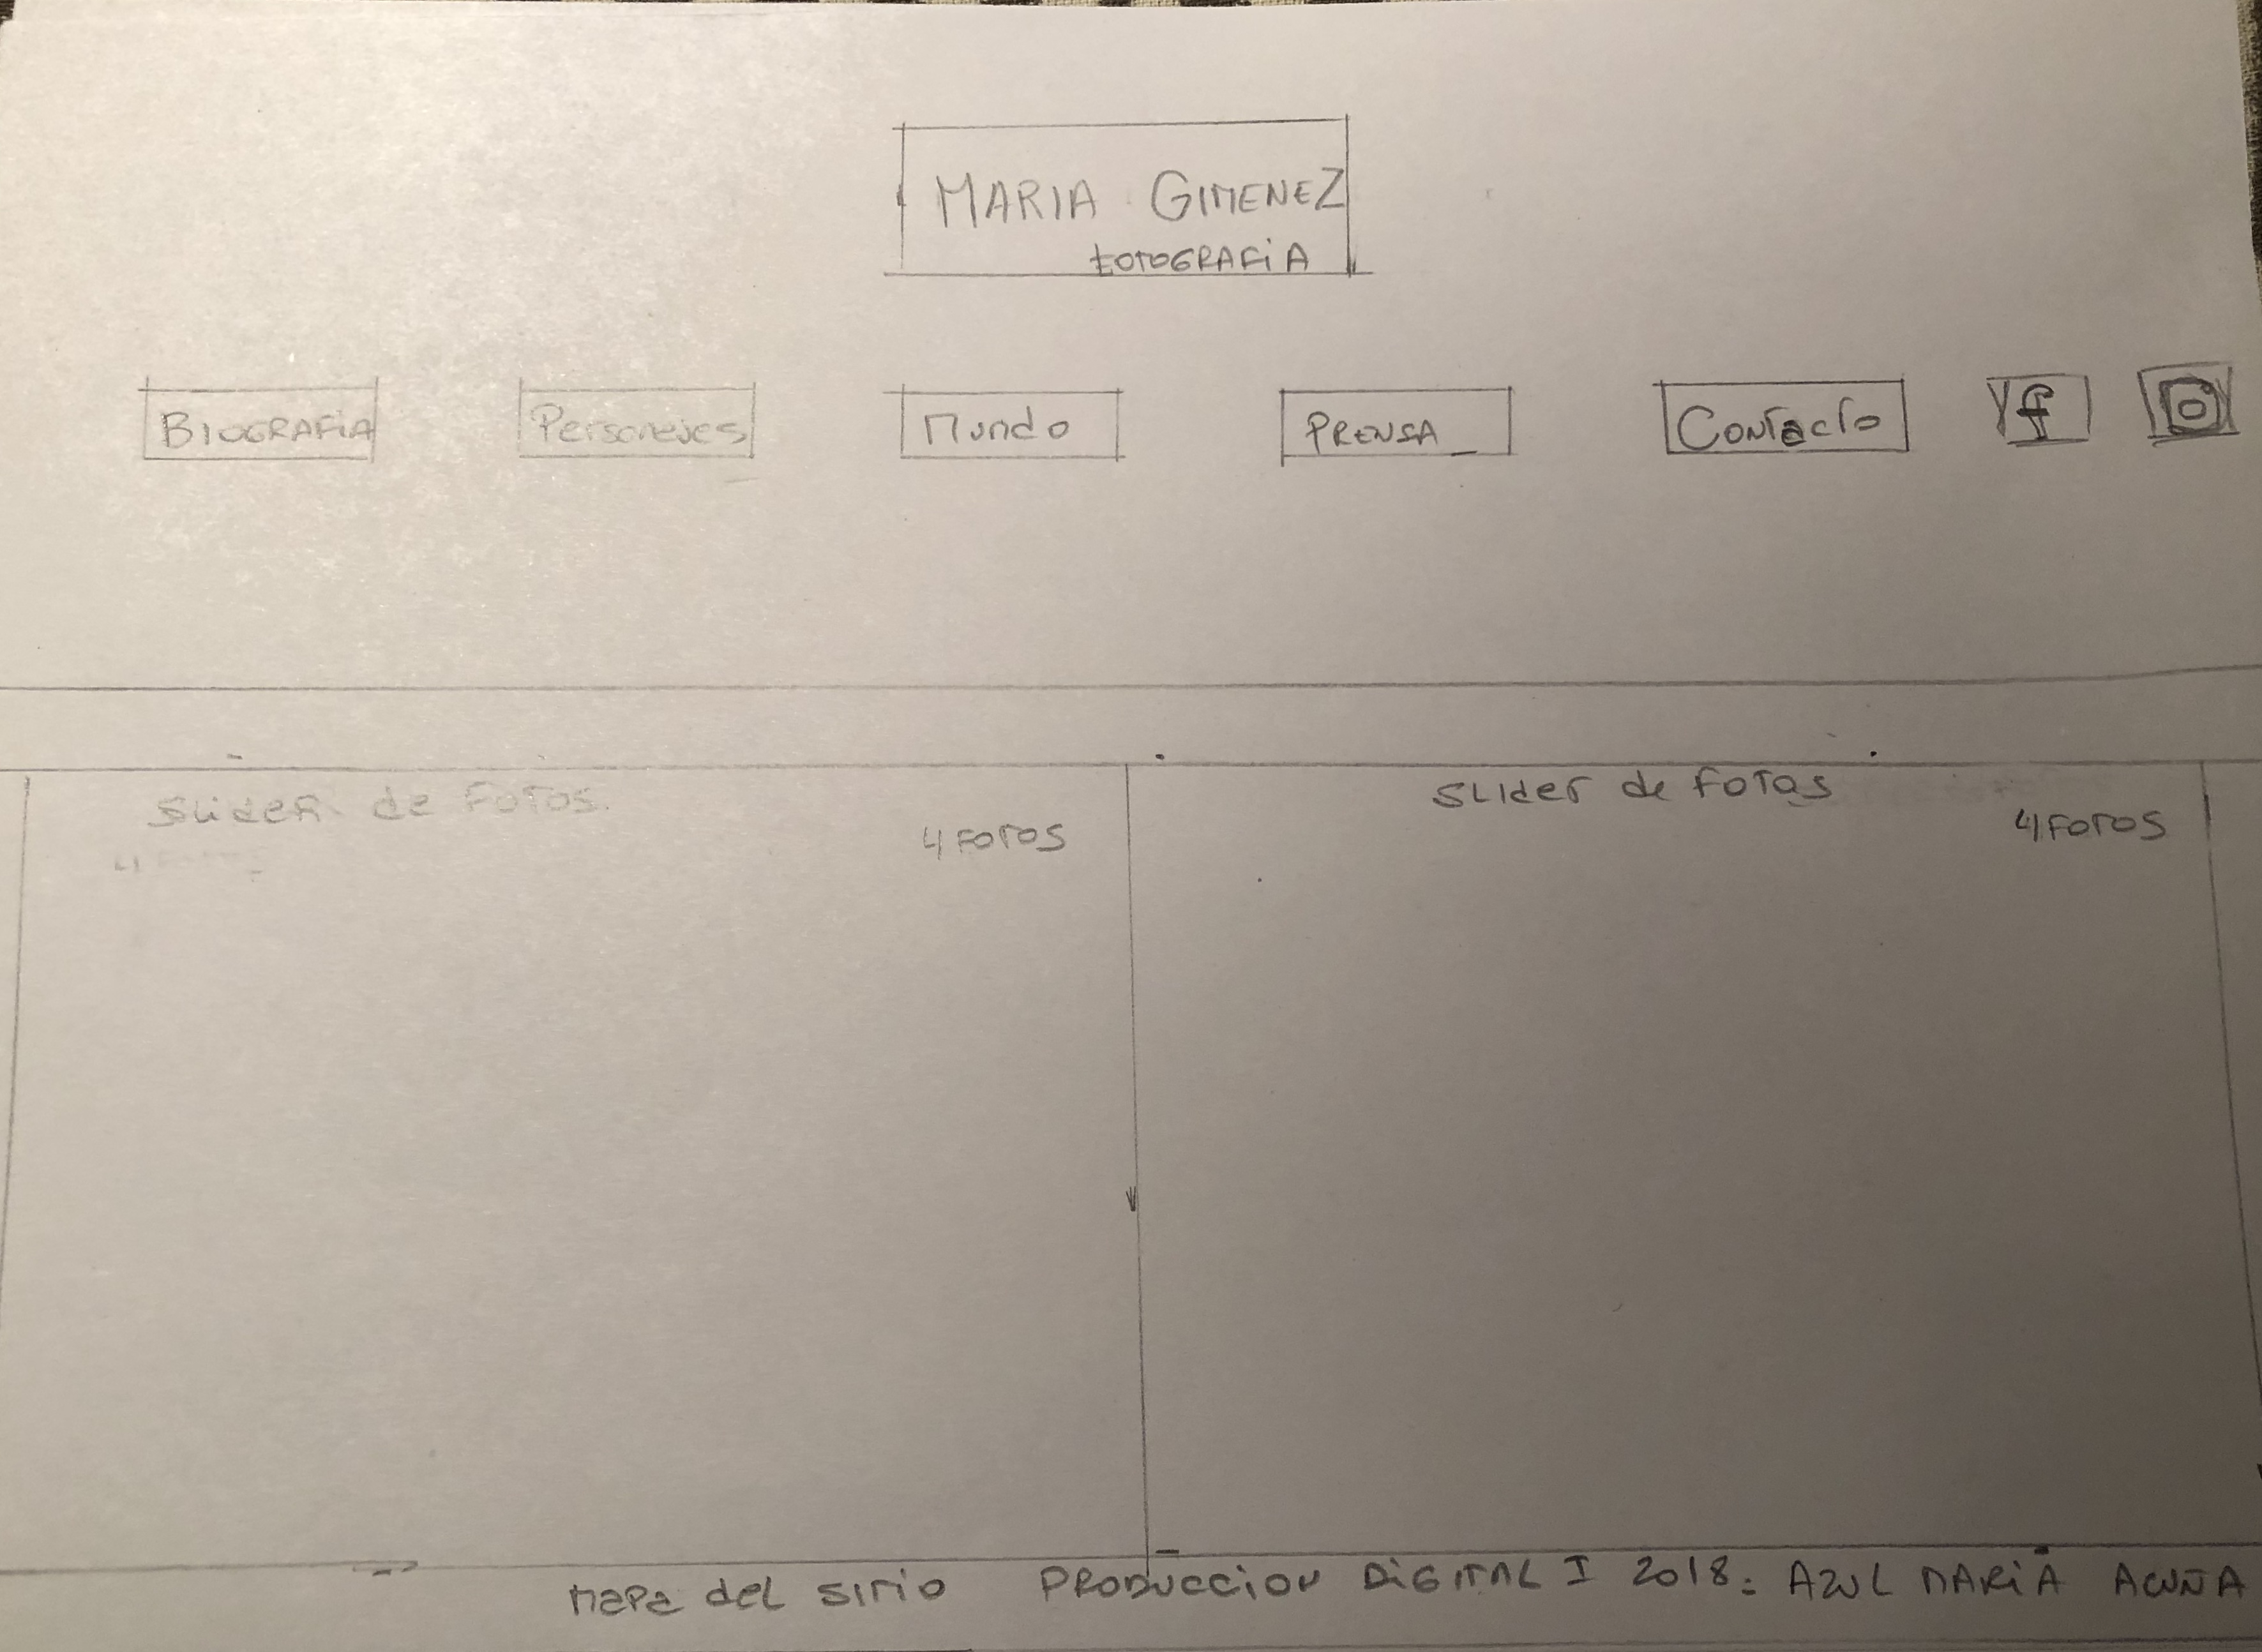 MARIA GIMENEZ
FOTOGRAFIA
BIOGRAFIA Personajes Mundo PRENSA Contacto f
Slider de Fotos
4 FOTOS
Slider de Fotos
4 FOTOS
Mapa del sitio PRODUCCION DIGITAL I 2018: AZUL MARIA ACUÑA